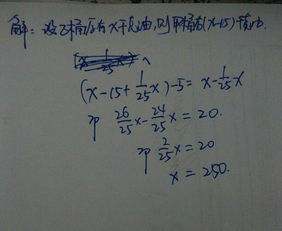 解：设乙桶原有x千克油,则甲桶有(x-15)千克油.
(x-15+1/25x)-5=x-1/25x
⇒ 26/25x-24/25x=20.
⇒ 2/25x=20
x=250.